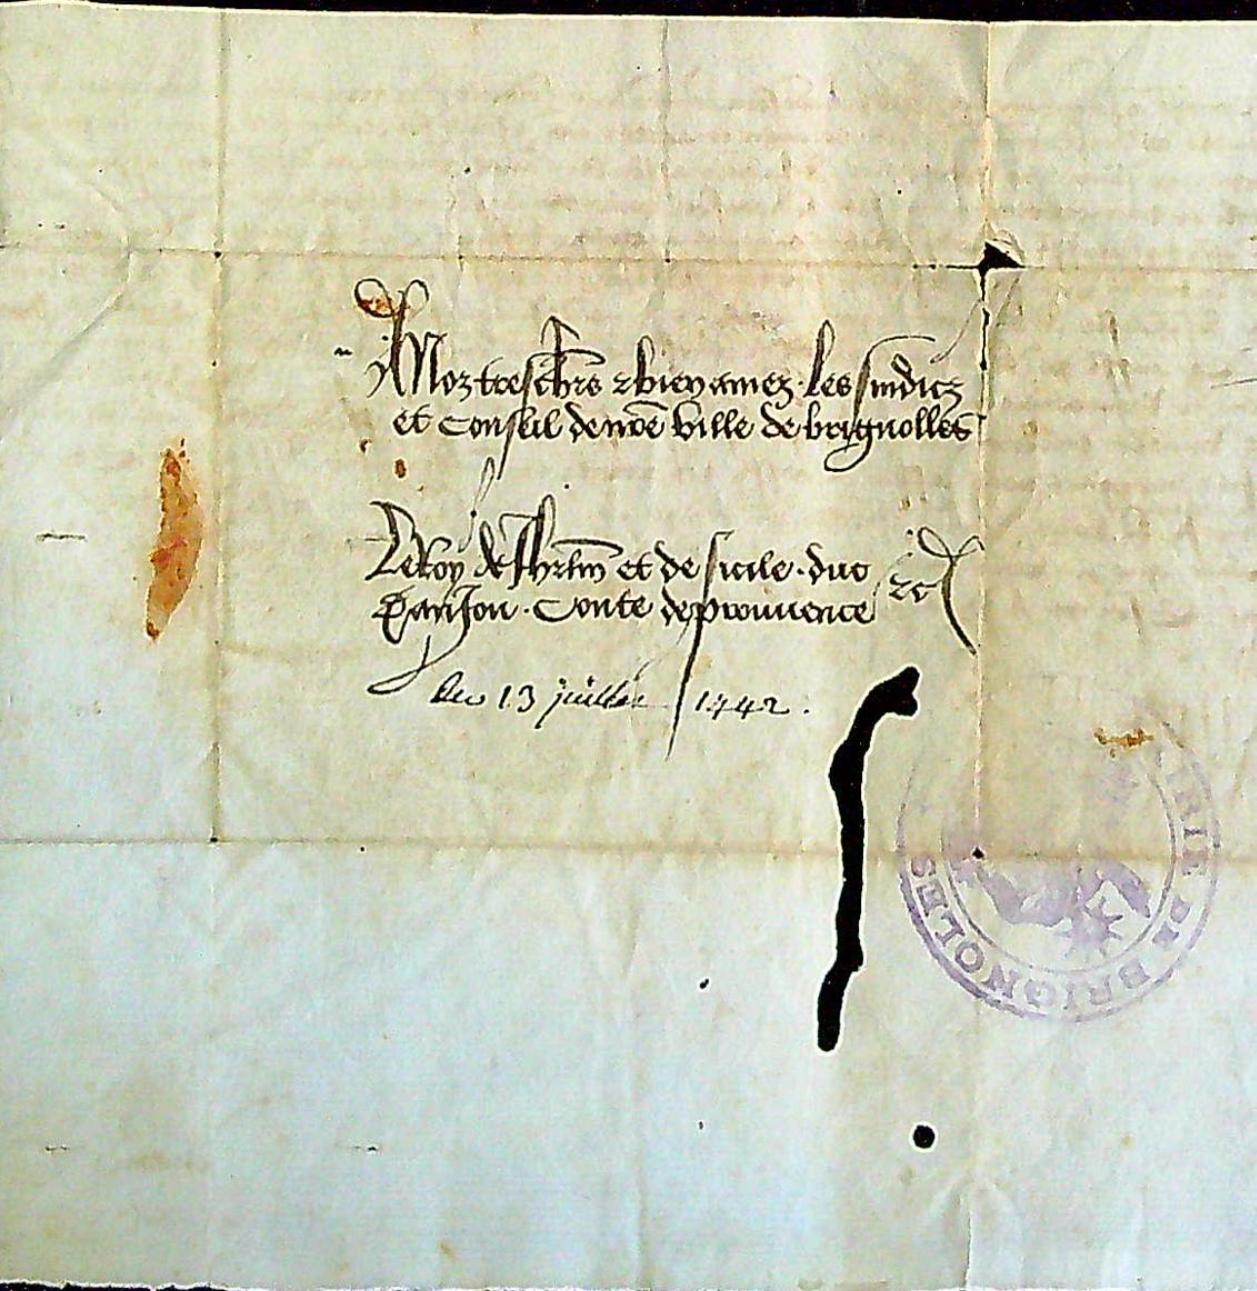 A Noz treschrs & bien amez les sindicz
et Conseil de nre ville de brignolles
Le Roy de Jhrlm et de sicile · duc
Danjou · Conte de prouuence &c
du 13 juillet 1442 .
IRIE DE BRIGNOLES